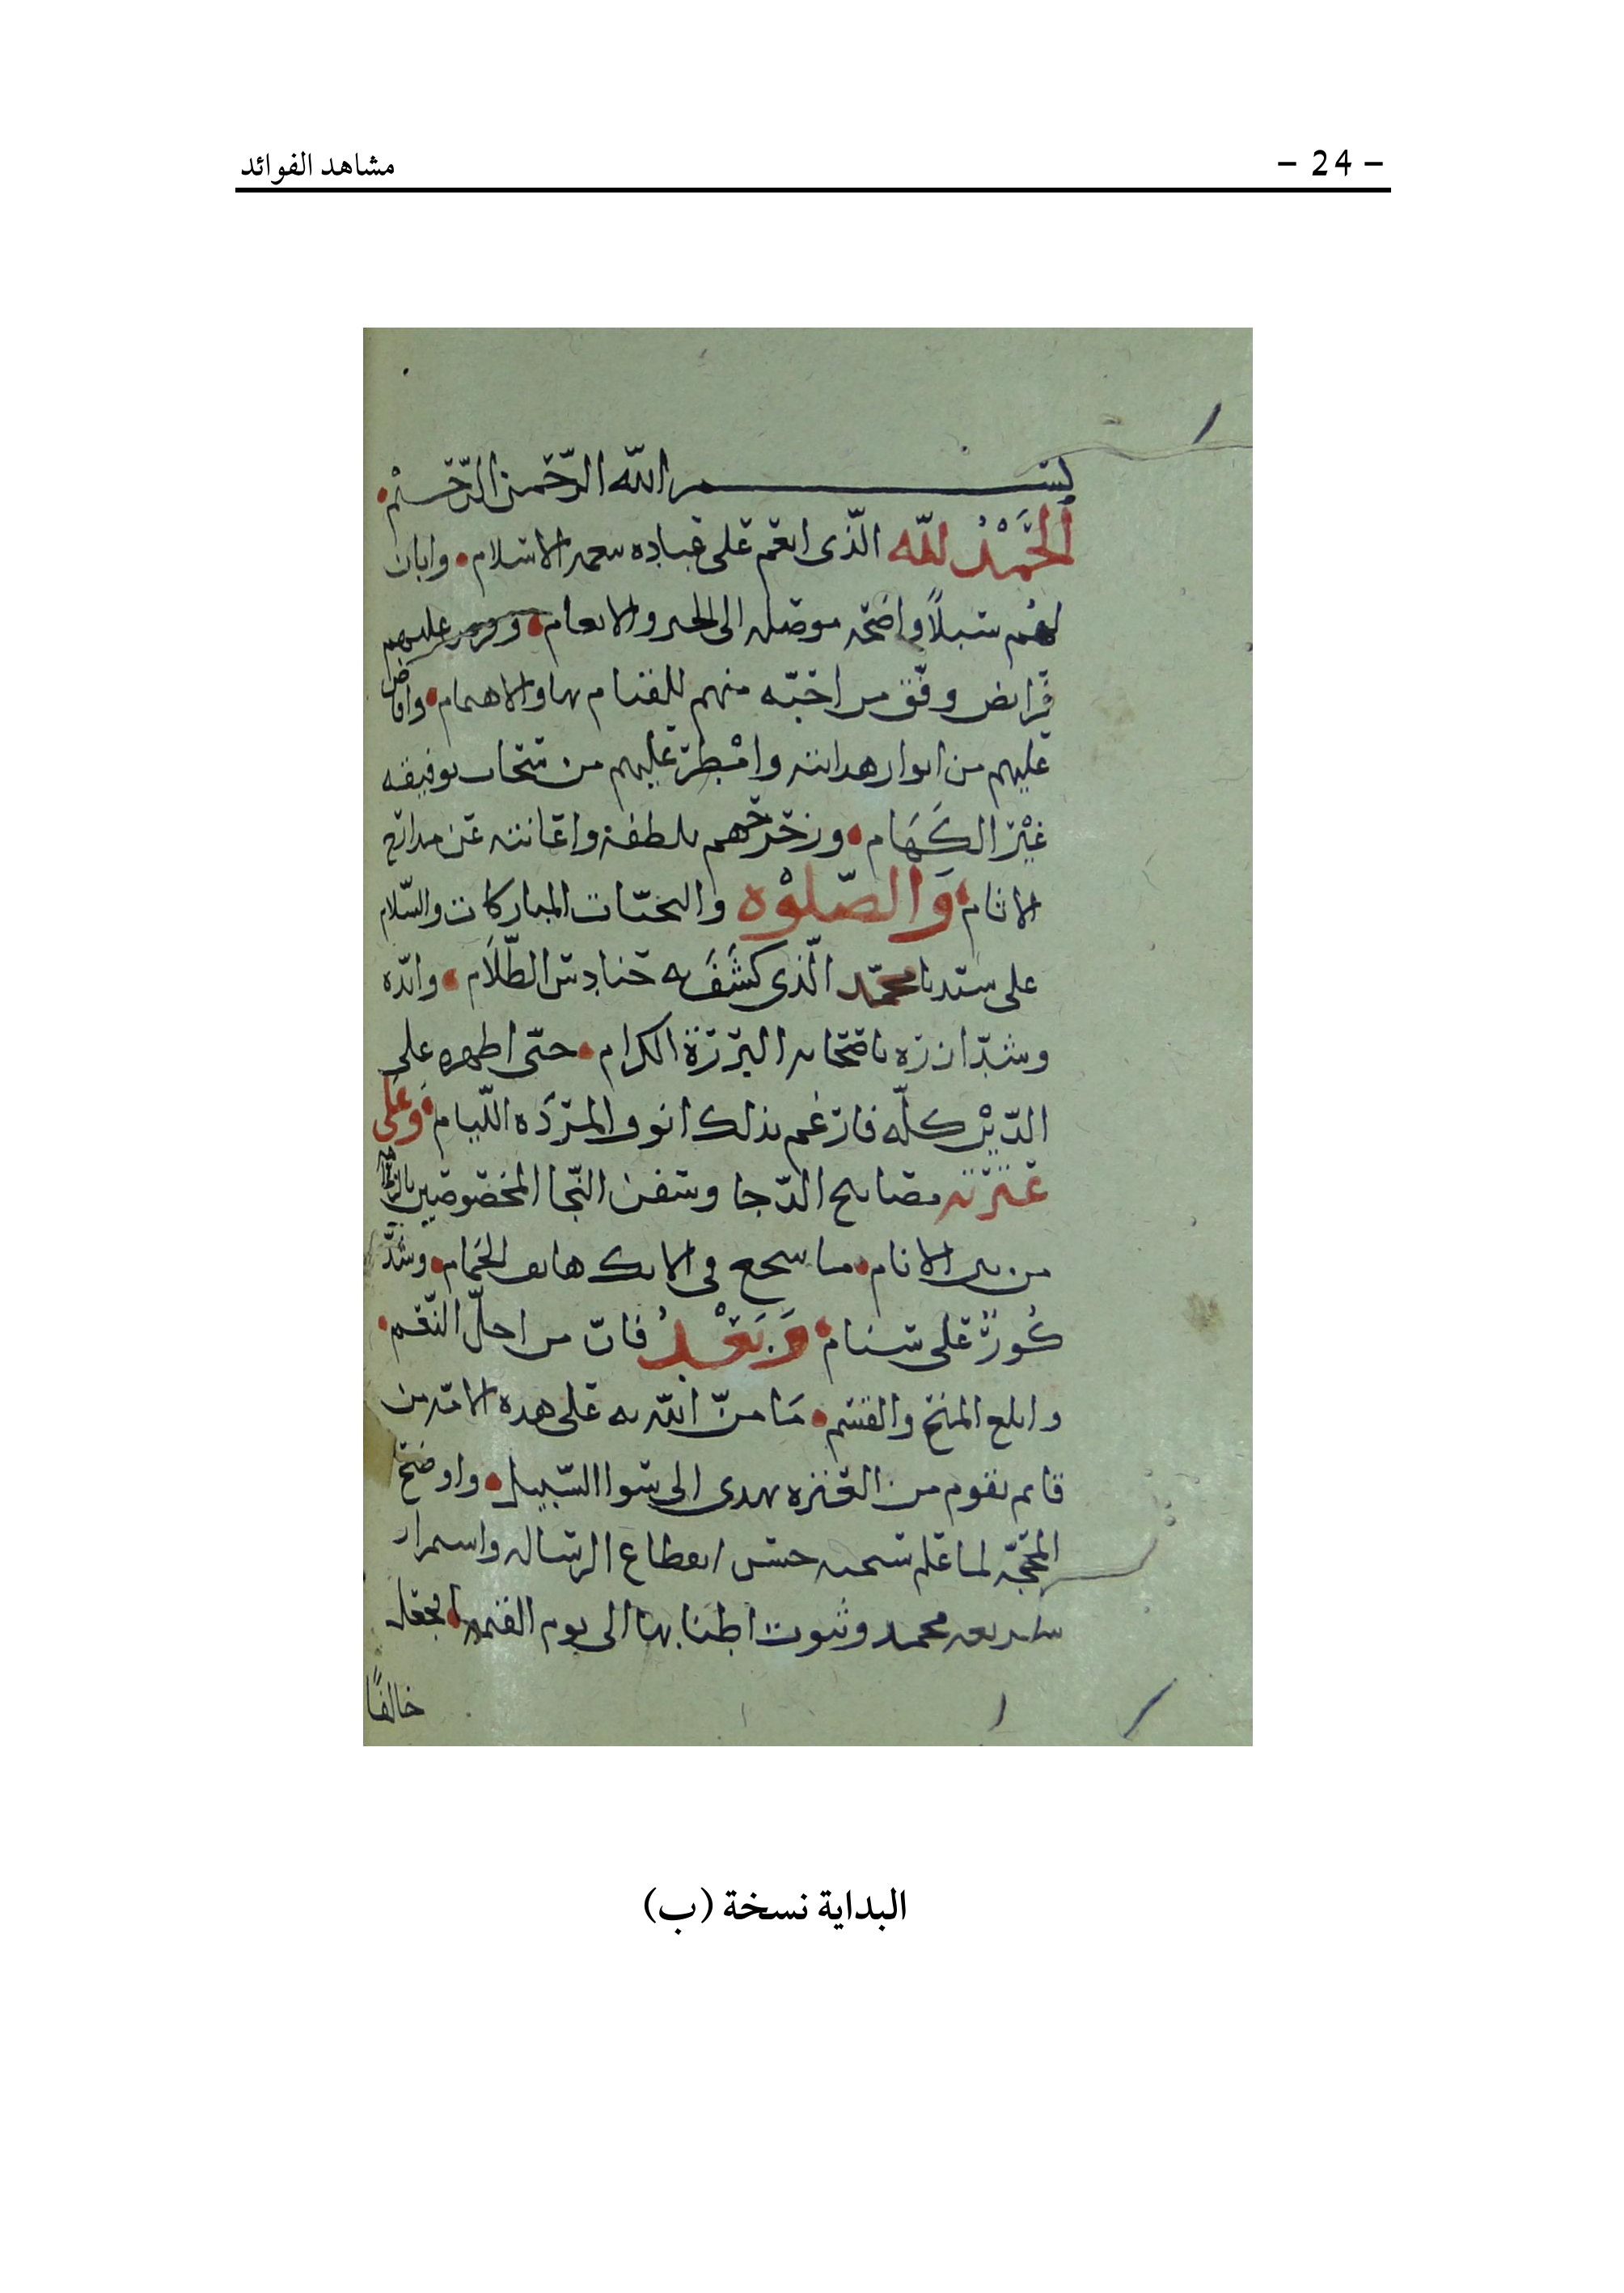 - 24 -
مشاهد الفوائد
بسم الله الرحمن الرحيم
الحَمْدُ لله الّذى انعم على عباده بنعمة الاسلام • وابان
لهم سبلاً واضحة موصلة الى الخير والانعام • وفرض عليهم
فرايض ووفّق من احبّه منهم للقيام بها والاهتمام • وافاض
عليهم من انوار هدايته وامْطر عليهم من سحاب توفيقه
غيْر الكَهَام • وزحزحهم بلطفه واعانته عن مداتح
الاثام • وَالصّلوْه والتحيّات المباركات والسّلام
على سيدنا محمّد الّذى كشَفَ به حنادس الظّلَام • وايّده
وشدّ ازره باصحابه البررة الكرام • حتّى اظهره على
الدّيْن كلّه فارغم بذلك انوف المَرَدَه اللّيام • وعَلى
عترته مصابيح الدّجا وسفن النّجا المخصوصين
من بين الانام • ما سجع فى الايك هاتف الحَمام • وشدّ
كُورٌ على سنام • وَبَعْدُ فانّ من اجلّ النّعم •
وابلغ المنح والقسم • مَا منّ الله به على هذه الامّة من
قايم يقوم من العترة يهدى الى سوا السّبيل • واوضح
المحجّة لما علم سبحنه حسن انقطاع الرسالة واستمرار
شريعة محمد وثبوت اطنابها الى يوم القيمة • فجعله
خالفًا
البداية نسخة (ب)